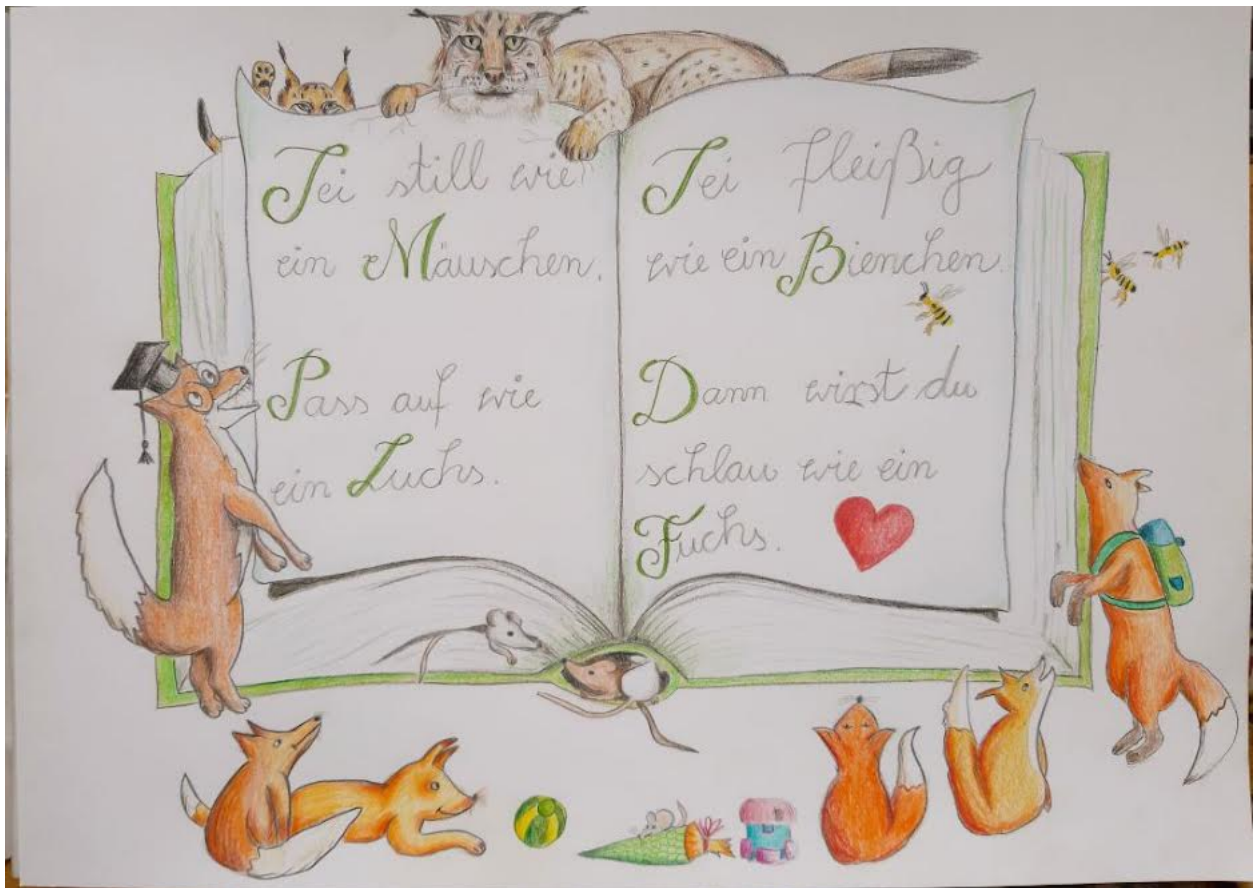 Sei still wie
ein Mäuschen.
Pass auf wie
ein Luchs.
Sei fleißig
wie ein Bienchen.
Dann wirst du
schlau wie ein
Fuchs.